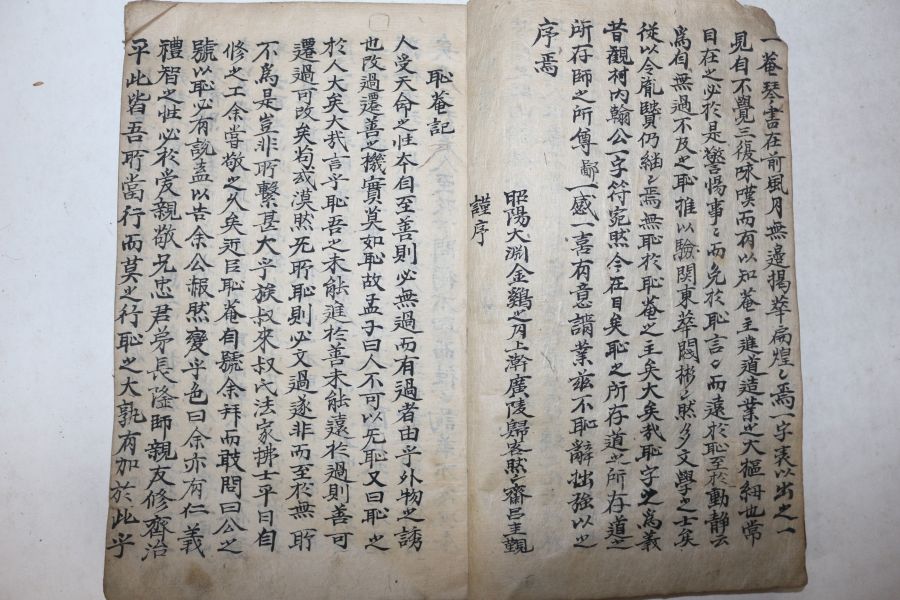 一菴琴書在前風月無邊揭華扁煌〻焉一字表以出之一
見自不覺三復味嘆而有以知菴主進道造業之大樞紐也常
目在之必於是警惕事〻而免於恥言〻而遠於恥至於動靜云
爲自無過不及之恥推以驗関東華閥彬〻然多文學之士矣
從以令胤賢仍繼〻焉無恥於恥菴之主矣大矣哉恥字之爲義
昔觀柯內翰公一字符宛然今在目矣恥之所存道之所存道之
所存師之所傳鄙一感一喜有意請業玆不恥辭拙強以之
序焉
昭陽大淵金鷄之月上澣廣陵歸客然齋呂圭觀
謹序
恥菴記
人受天命之性本自至善則必無過而有過者由乎外物之誘
也改過遷善之機實莫如恥故孟子曰人不可以无恥又曰恥之
於人大矣大哉言乎恥吾之未能進於善未能遠於過則善可
遷過可改矣苟或漠然无所恥則必文過遂非而至於無所
不爲是豈非所繫甚大乎族叔來叔氏法家拂士平日自
修之工余嘗敬之久矣近臣恥菴自號余拜而敢問曰公之
號以恥必有說盍以告余公赧然變乎色曰余亦有仁義
禮智之性必於愛親敬兄忠君弟長隆師親友修齊治
平此皆吾所當行而莫之行恥之大孰有加於此乎